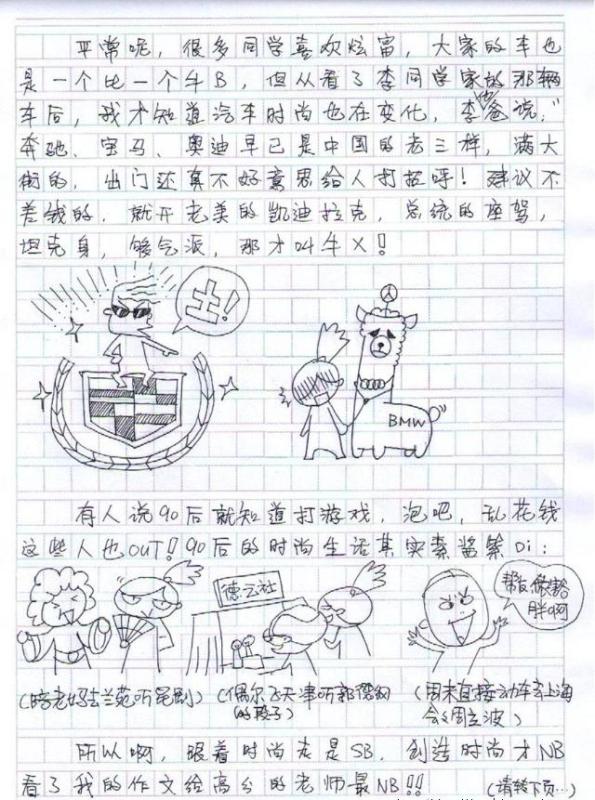 平常呢，很多同学喜欢炫富，大家的车也
是一个比一个牛B，但从看了李同学家的那辆
车后，我才知道汽车时尚也在变化，李他爸说，"
奔驰、宝马、奥迪早已是中国的老三样，满大
街的，出门还真不好意思给人打招呼！建议不
差钱的，就开老美的凯迪拉克，总统的座驾，
坦克身，够气派，那才叫牛X！
土！
BMW
有人说90后就知道打游戏，泡吧，乱花钱
这些人也OUT！90后的时尚生活其实素酱紫Di：
德云社
帮我做
胖啊
（陪老妈去兰苑听昆剧）
（偶尔飞天津听郭德纲
的段子）
（周末直接动车去上海
会会周立波）
所以啊，跟着时尚走是SB，创造时尚才NB
看了我的作文给高分的老师最NB！！
（请转下页…）